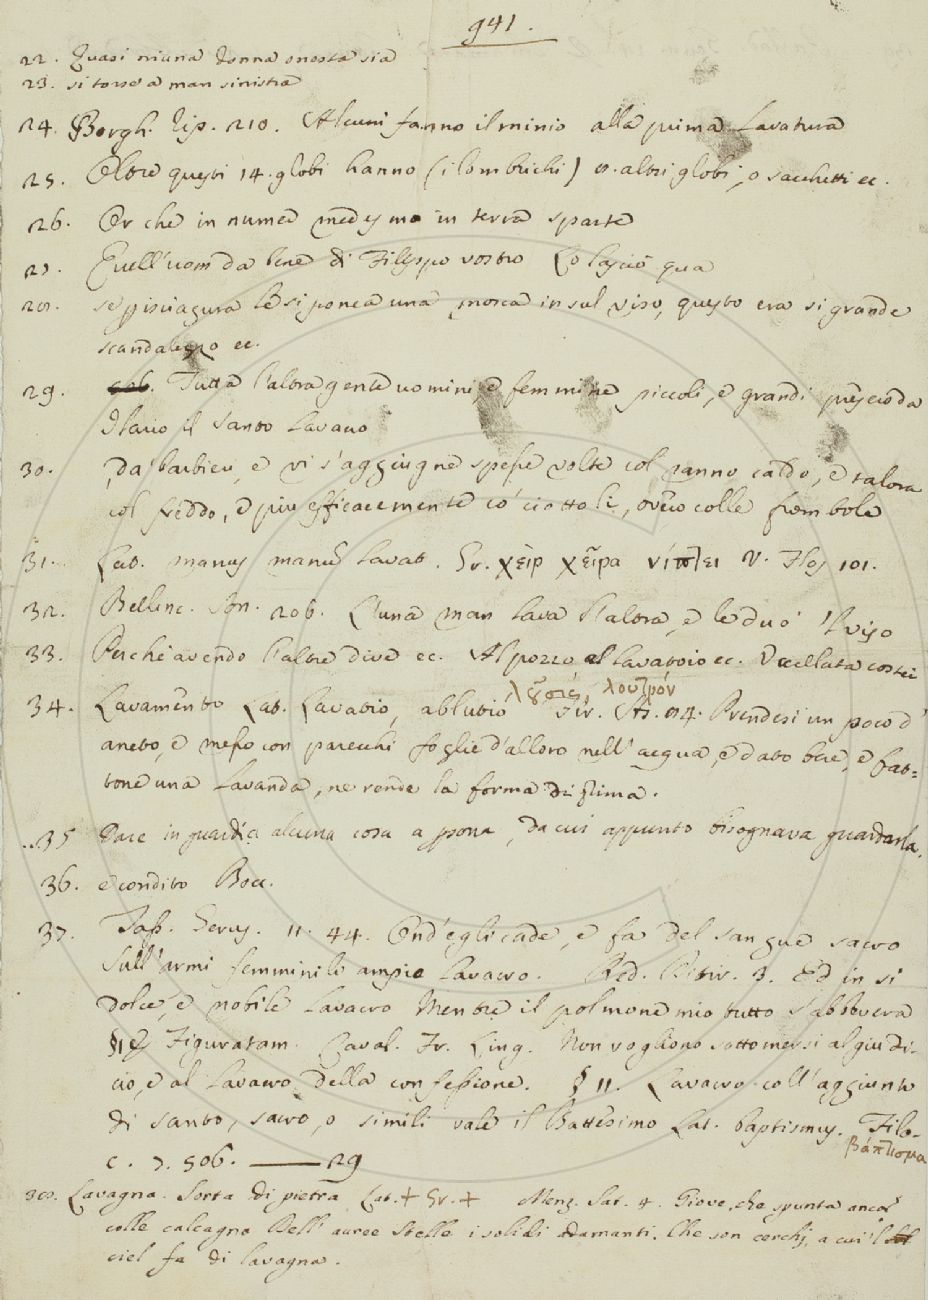 941.
22. Quasi niuna donna onesta sia
23. si torse a man sinistra
24. Borgh. Rip. 210. Alcuni fanno il minio alla prima lavatura
25. Oltre questi 14. globi hanno (i lombrichi) 8. altri globi, o sacchetti ec.
26. Or che in numer medesmo in terra sparte
27. Quell'uom da bene di Filippo vostro Lo lasciò qua
28. se pisciagura le si ponea una mosca in sul viso, questo era sì grande
scandalezzo ec.
29. Tutta l'altra gente uomini e femmine piccoli, e grandi
Ilario il Santo lavaro
30. da' barbieri, e vi s'aggiugne spesse volte col ranno caldo, e talora
col freddo, e piu efficacemente co' ciottoli, overo colle frombole
31. Lat. manus manum lavat. Gr. χεὶρ χεῖρα νίπτει V. Flos 101.
32. Bellinc. Son. 206. L'una man lava l'altra, e le due 'l viso
33. Perchè avendo l'altre dive ec. Al pozzo al lavatoio ec. Uccellata costei
λεῦσις, λουτρόν
34. Lavamento Lat. Lavatio, ablutio Vir. As. 84. Prendesi un poco d'
aneto, e messo con parecchi foglie d'alloro nell'acqua, e dato bere, e fat=
tone una lavanda, ne rende la forma di prima.
35 Dare in guardia alcuna cosa a persona, da cui appunto bisognava guardarla.
36. e condito Bocc.
37. Tass. Gerus. 11. 44. Ond'egli cade, e fa del sangue sacro
Sull'armi femminili ampio lavacro. Red. Ditir. 3. Ed in sì
dolce, e nobile lavacro Mentre il polmone mio tutto s'abbevera
§ I. Figuratam. Caval. Fr. Ling. Non vogliono sottomersi al giudi-
cio, e al lavacro della confessione. § II. Lavacro coll'aggiunto
di santo, sacro, o simili vale il Battesimo Lat. baptismus. Filo-
βάπτισμα
c. 7. 506. —— 29
38. Lavagna. Sorta di pietra Lat. + Gr. + Menz. Sat. 4. Giove, che spunta ancor
colle calcagna Dell'auree Stelle i solidi adamanti, Che son cerchj, a cui 'l
ciel fa di lavagna.